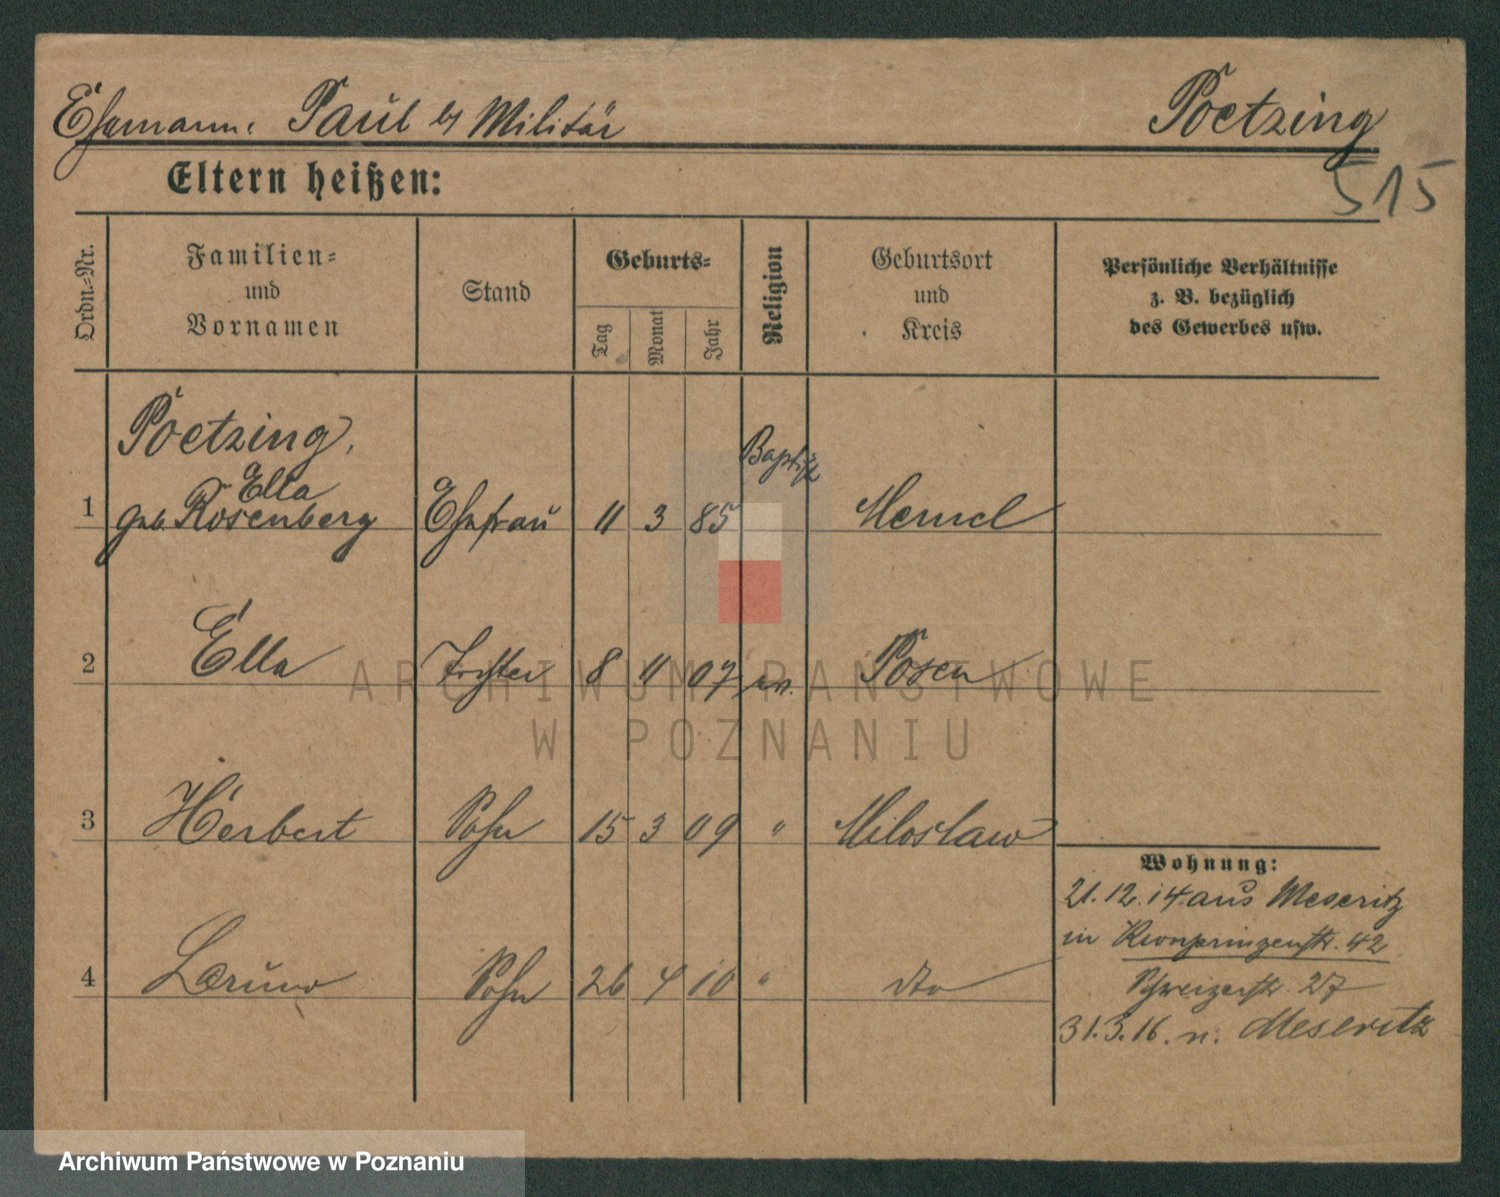 Ehemann: Paul bz Militär Poetzing
515
Eltern heißen:
Ordn.-Nr.
Familien-
und
Vornamen
Stand
Geburts-
Tag
Monat
Jahr
Religion
Geburtsort
und
Kreis
Persönliche Verhältnisse
z. B. bezüglich
des Gewerbes usw.
Poetzing,
Ella
1 geb. Rosenberg Ehefrau 11 3 85 Baptist Memel
2 Ella Tochter 8 11 07 Posen
3 Herbert Sohn 15 3 09 " Miloslaw
4 Bruno Sohn 26 4 10 " dto
Wohnung:
21.12.14. aus Meseritz
in Kronprinzenstr. 42
Schweizerstr. 27
31.3.16. n. Meseritz
ARCHIWUM PAŃSTWOWE
W POZNANIU
Archiwum Państwowe w Poznaniu